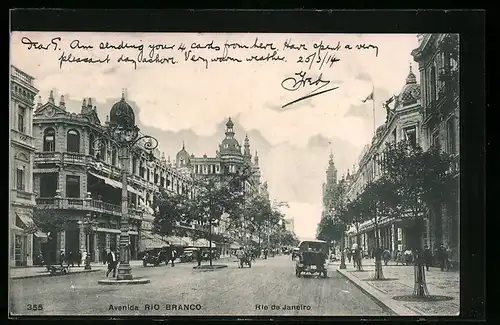 Dear G. Am sending you 4 cards from here. Have spent a very
pleasant day ashore. Very warm weather. 25/3/14
Fred
355 Avenida RIO BRANCO Rio de Janeiro